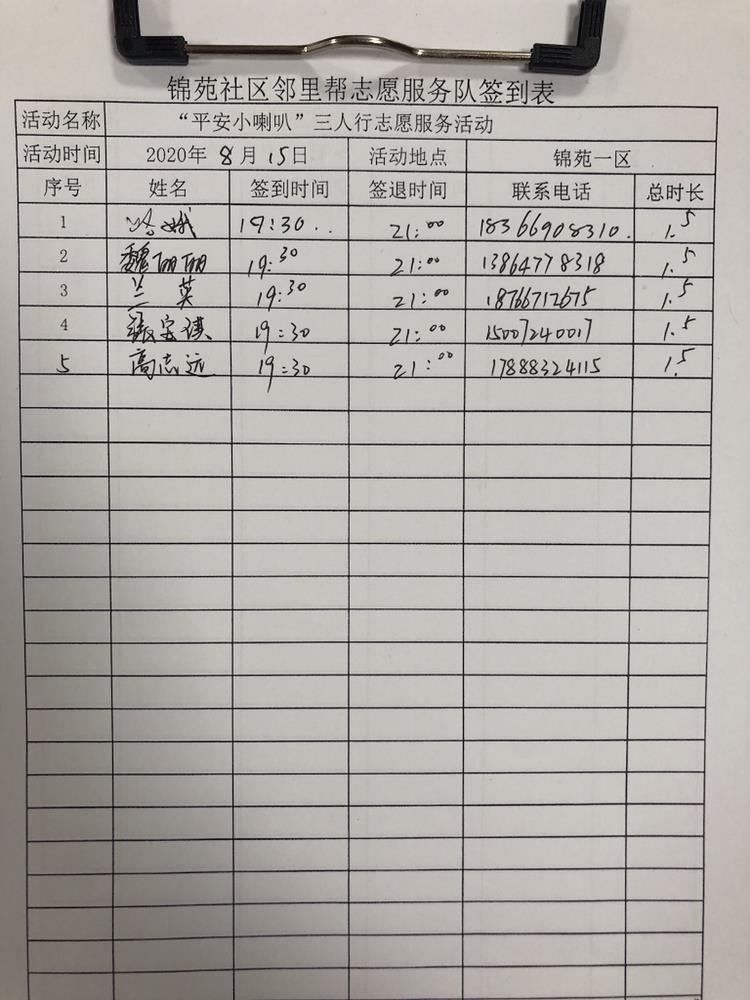 锦苑社区邻里帮志愿服务队签到表
活动名称 “平安小喇叭”三人行志愿服务活动
活动时间 2020年 8月 15日 活动地点 锦苑一区
序号 姓名 签到时间 签退时间 联系电话 总时长
1 19:30.. 21:00 18366908310. 1.5
2 魏丽丽 19:30 21:00 13864778318 1.5
3 兰英 19:30 21:00 18766712675 1.5
4 19:30 21:00 15007240017 1.5
5 高志远 19:30 21:00 17888324115 1.5